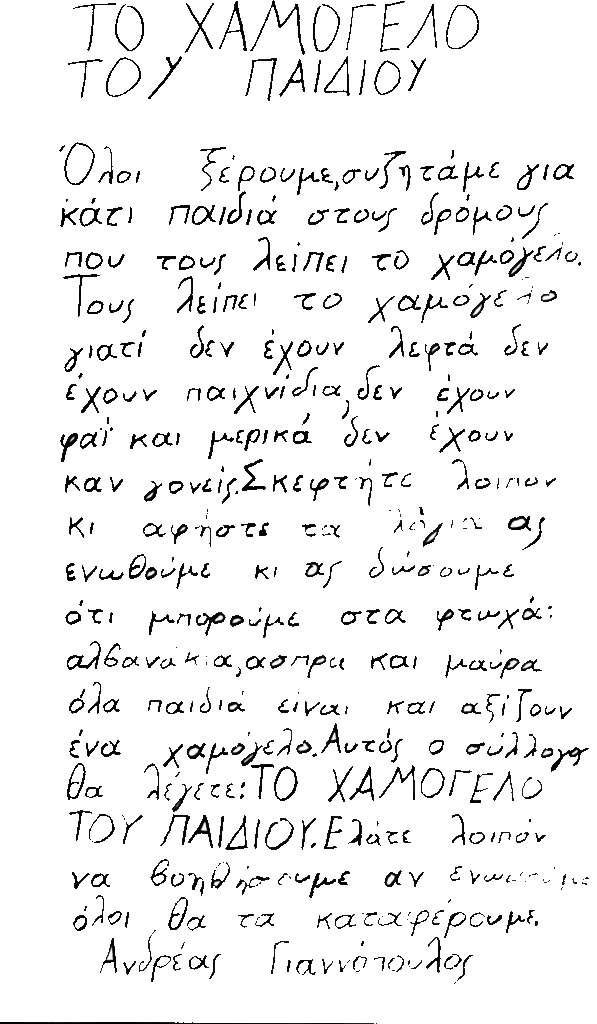 ΤΟ ΧΑΜΟΓΕΛΟ
ΤΟΥ ΠΑΙΔΙΟΥ
Όλοι ξέρουμε,συζητάμε για
κάτι παιδιά στους δρόμους
που τους λείπει το χαμόγελο.
Τους λείπει το χαμόγελο
γιατί δεν έχουν λεφτά δεν
έχουν παιχνίδια,δεν έχουν
φαΐ και μερικά δεν έχουν
καν γονείς.Σκεφτήτε λοιπον
κι αφήστε τα λόγια ας
ενωθούμε κι ας δώσουμε
ότι μπορούμε στα φτωχά:
αλβανάκια,ασπρα και μαύρα
όλα παιδιά είναι και αξίζουν
ένα χαμόγελο.Αυτός ο σύλλογος
θα λέγετε:ΤΟ ΧΑΜΟΓΕΛΟ
ΤΟΥ ΠΑΙΔΙΟΥ.Ελάτε λοιπόν
να βοηθήσουμε αν ενωθούμε
όλοι θα τα καταφέρουμε.
Ανδρέας Γιαννόπουλος